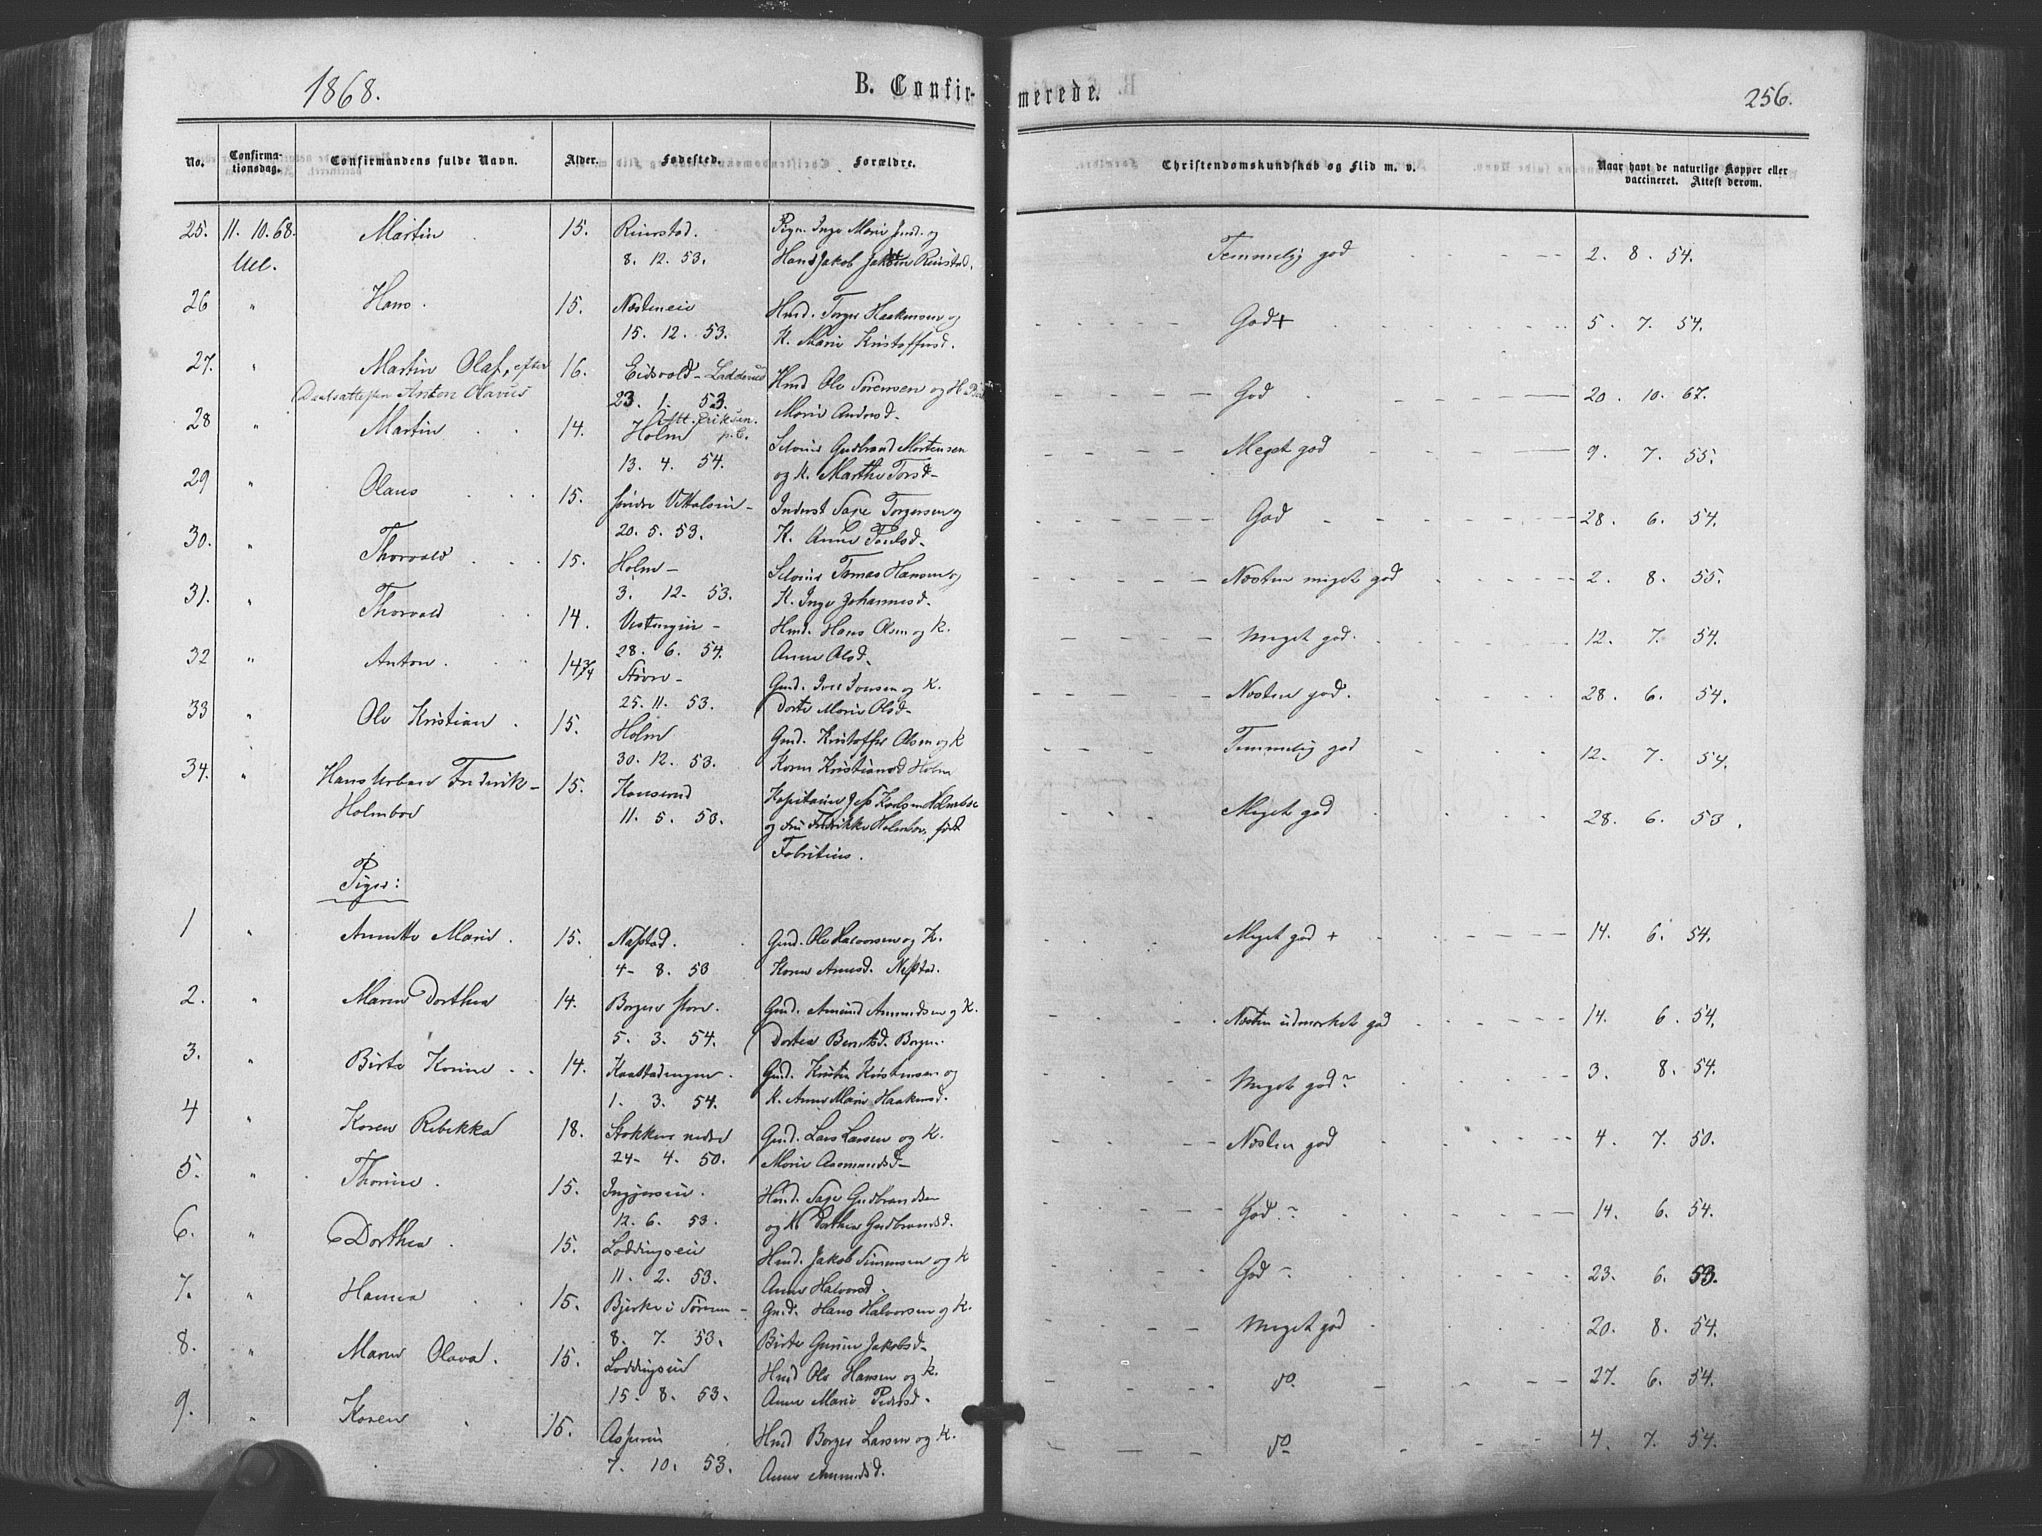 1868.
B. Confirmerede.
256.
No. Confirmationsdag. Confirmandens fulde Navn. Alder. Fødested. Forældre. Christendomskundskab og Flid m. v. Naar havt de naturlige Kopper eller vaccineret. Attest derom.
25. 11. 10. 68. Martin 15. Pige. Inge Marie og Temmelig god 2. 8. 54.
Ull. 8. 12. 53. Hans Jakob
26 " Hans. 15. Næsteneie Hmd. Torger Haakensen og God + 5. 7. 54.
15. 12. 53. K. Marie Kristoffersd.
27. " Martin Olaf, efter 16. Eidsvold - Ladderud Hmd Ole Sørensen og God 20. 10. 67.
Daabsattesten Anton Olavus 23. 1. 53. Marie Andersd.
Att. Eriksen.
28 " Martin 14. Holm Selveier Gudbrand Mortensen Meget god 9. 7. 55.
13. 4. 54. og K. Marthe Torsd.
29 " Olaus 15. Søndre Inderst Torgersen og God 28. 6. 54.
20. 5. 53. K. Anne
30. " Thorvald 15. Holm - Selveier Tomas Hansen og Næsten meget god 2. 8. 55.
3. 12. 53. K. Inge Johannesd.
31. " Thorvald 14. Vestengeie - Hmd. Hans Olsen og K. Meget god. 12. 7. 54.
28. 6. 54. Anne Olsd.
32 " Anton. 14 3/4 Støvre - Gmd. Iver Iversen og K. Næsten god. 28. 6. 54.
25. 11. 53. Dorte Marie Olsd.
33 " Ole Kristian 15. Holm Gmd. Kristoffer Olsen og K Temmelig god 12. 7. 54.
30. 12. 53. Karen Kristiansd Holm
34. " Hans Urban Fredrik - 15. Hanserud Kapitaine Holmboe Meget god 28. 6. 53.
Holmboe 11. 5. 53. og Fru Fredrikke Holmboe, født
Fabritius.
Piger:
1 " Annette Marie. 15. Næstad. Gmd. Ole Halvorsen og K. Meget god + 14. 6. 54.
4 - 8. 53 Karen Arnesd. Nestad.
2. " Maren Dorthea 14. Borgen store. Gmd. Amund Amundsen og K. Næsten udmærket god 14. 6. 54.
5. 3. 54. Dortea Berntsd. Borgen.
3. " Birte Karine 14. Kaattadengen. Gmd. Kristen Kristensen og Meget god ~ 3. 8. 54.
1. 3. 54. K. Anne Marie Haakensd.
4 " Karen Rebekka 18. Stokker nedre Gmd. Lars Larsen og K. Næsten god 4. 7. 50.
24 - 4. 50. Marie Aamundsd -
5. " Thorine. 15. Ingjerseie. Hmd. Gudbrandsen God ~ 14. 6. 54.
12. 6. 53. og K. Dorthea Gudbrandsd.
6. " Dorthea. 15. Løddingseie Hmd. Jakob Simensen og K God ~ 23. 6. 53.
11. 2. 53. Anne Halvorsd.
7. " Hanna 15. Bjerke i Sørum - Gmd. Hans Halvorsen og K. Meget god 20. 8. 54.
8. 7. 53. Birte Gurine Jakobsd -
8. " Maren Olava. 15. Løddingseie Hmd Ole Hansen og K. do 27. 6. 54.
15. 8. 53. Anne Marie Pedersd.
9. " Karen 15. Aspeeie Hmd Borger Larsen og K. do 4. 7. 54.
7. 10. 53. Anne Amundsd.